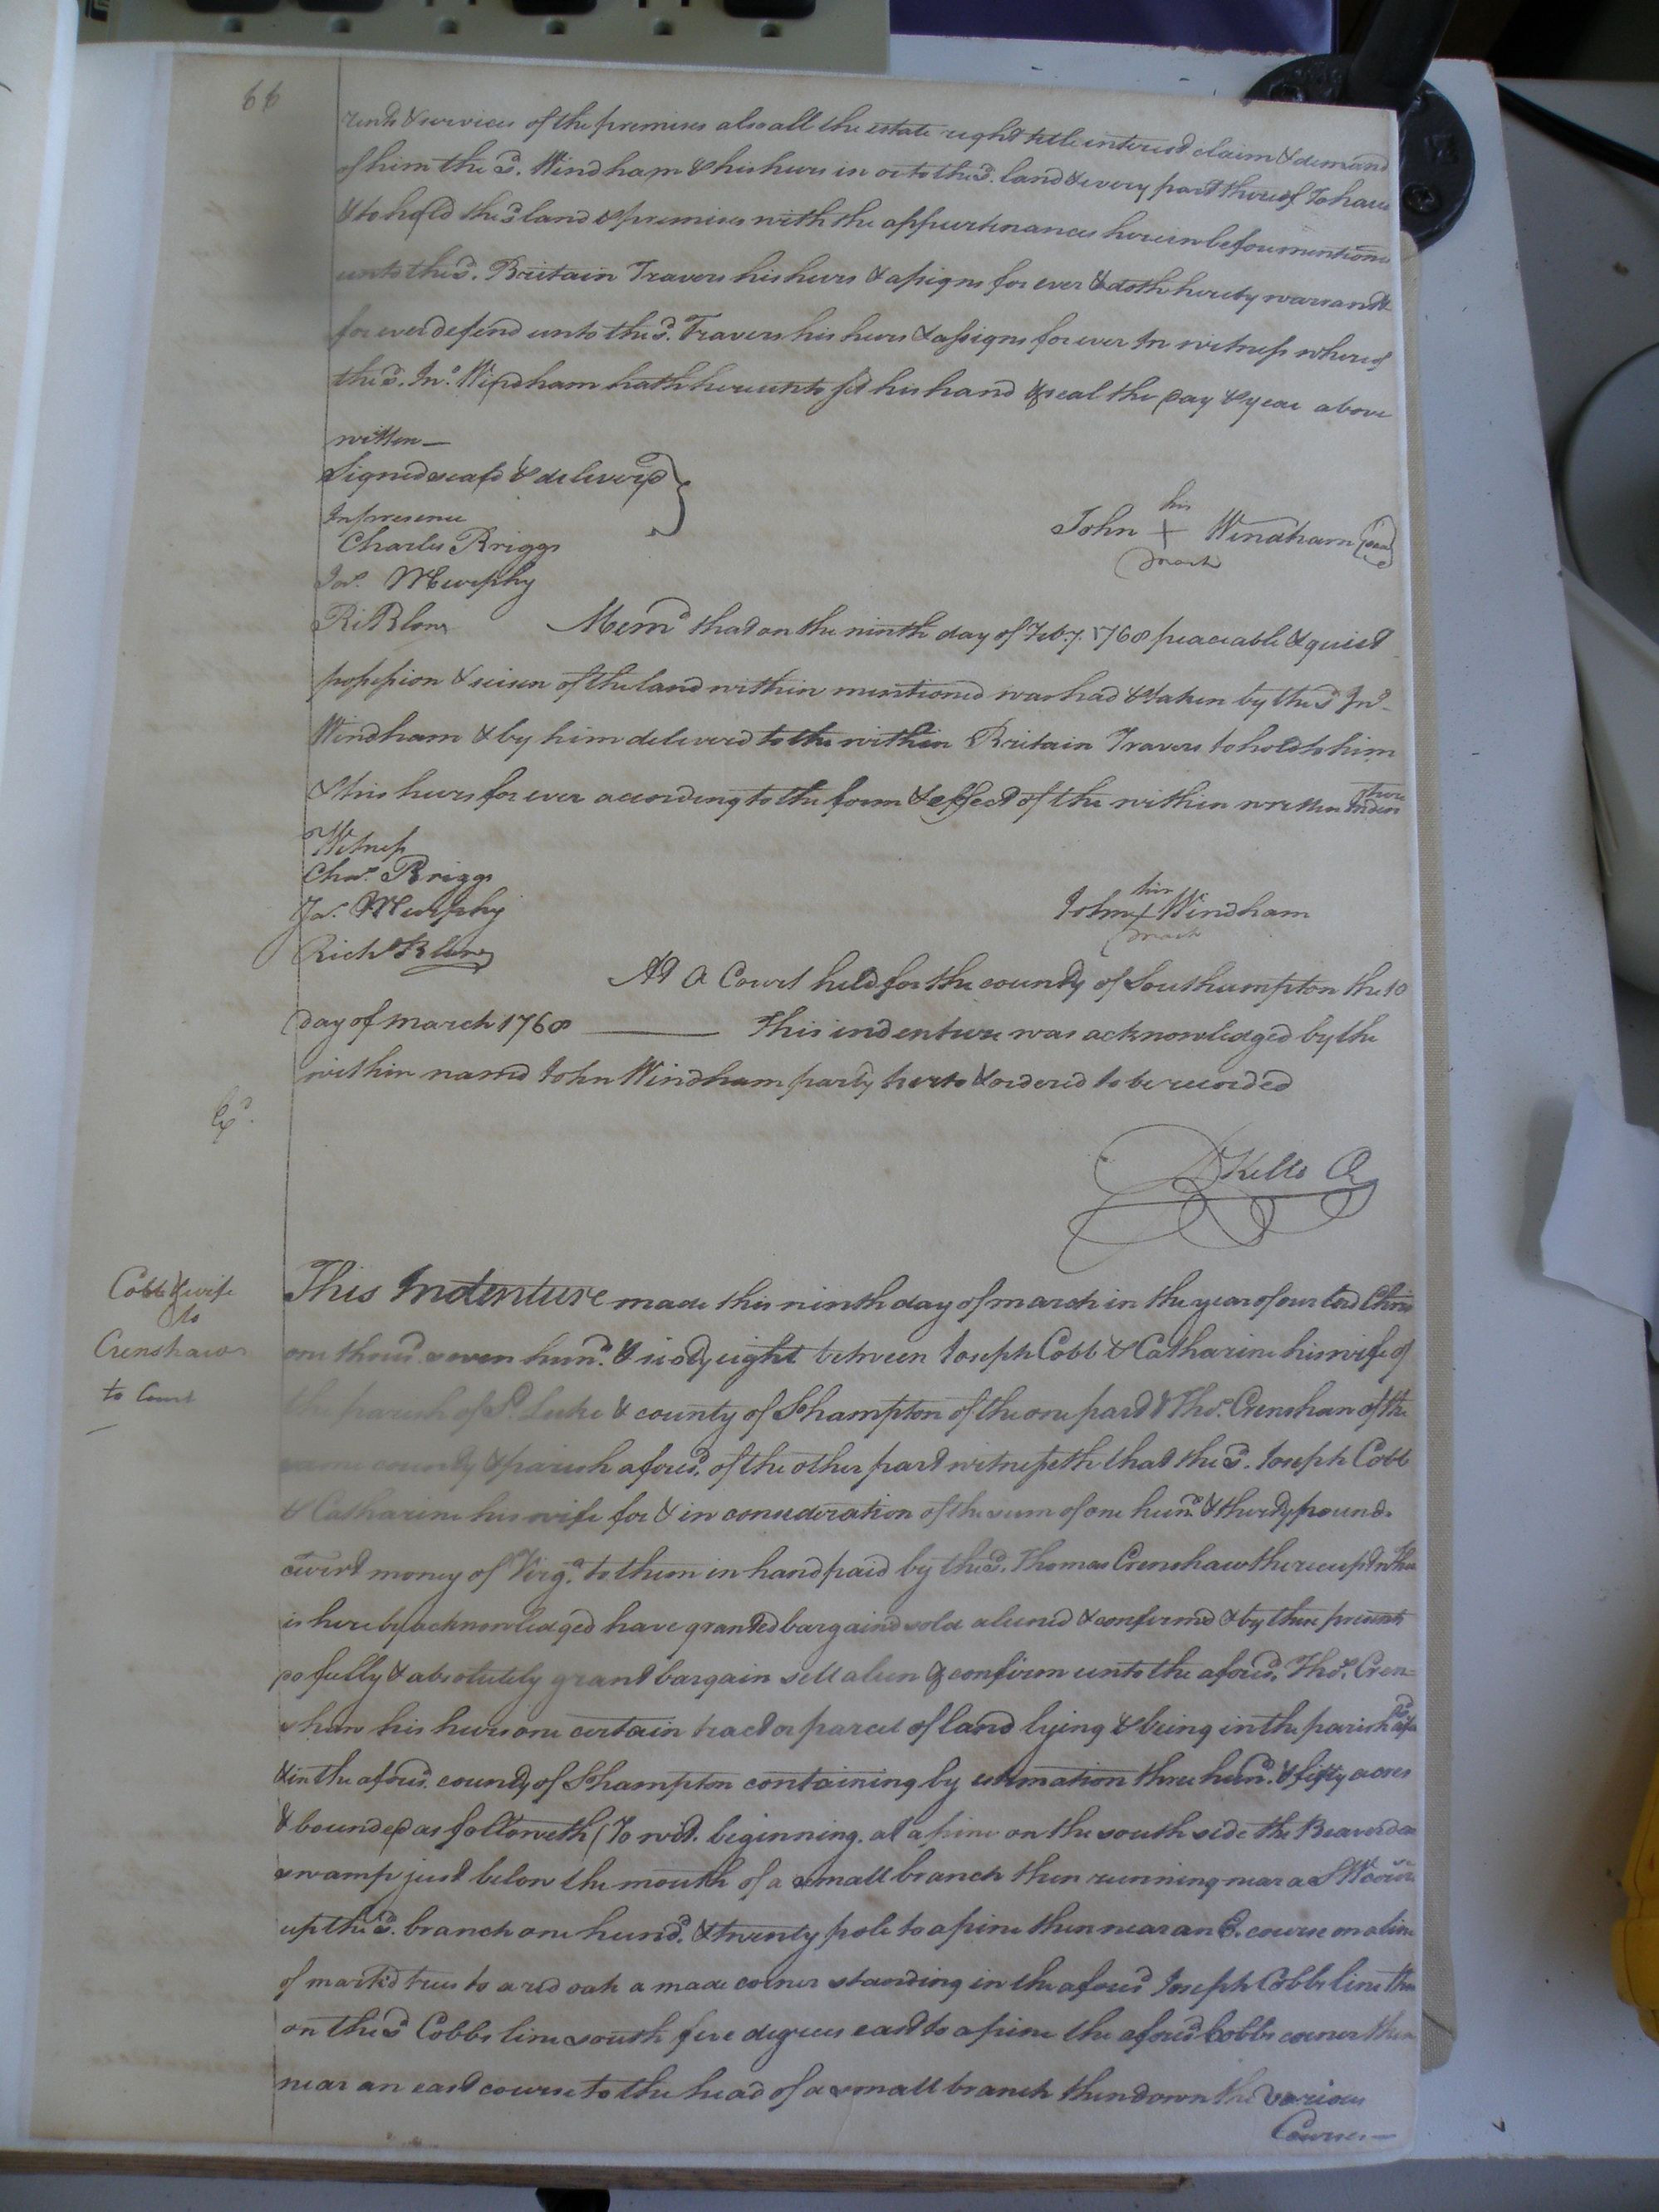 66
rents & services of the premises also all the estate right title interest claim & demand
of him the sd. Windham & his heirs in or to the sd. land & every part thereof To have
& to hold the sd land & premises with the appurtenances herein before mentiond
unto the sd. Britain Travers his heirs & assigns for ever & doth hereby warrant &
for ever defend unto the sd. Travers his heirs & assigns for ever In witness whereof
the sd. Jno. Windham hath hereunto set his hand & seal the day & year above
written —
Signed seald & deliverd
In presence
Charles Briggs
John his + mark Windham (seal)
Jas. Murphy
Ri Blow
Memd that on the ninth day of Feby. 1768 peaceable & quiet
possession & seisen of the land within mentioned was had & taken by the sd Jno.
Windham & by him deliverd to the within Britain Travers to hold to him
& his heirs for ever according to the form & effect of the within written Indenture
Witness
Chas. Briggs
Jas. Murphy
John his + mark Windham
Richd Blow
At a Court held for the county of Southampton the 10
day of March 1768 — This indenture was acknowledged by the
within named John Windham party herto & ordered to be recorded
Exd.
R Kello Cl
Cobb & wife
to
Crenshaw
to Court
This Indenture made this ninth day of march in the year of our Lord Christ
one thousd. seven hund. & sixty eight between Joseph Cobb & Catharine his wife of
the parish of St. Luke & county of Shampton of the one part & Thos. Crenshaw of the
same county & parish aforesd. of the other part witnesseth that the sd. Joseph Cobb
& Catharine his wife for & in consideration of the sum of one hund. & thirty pounds
curr't money of Virga. to them in hand paid by the sd. Thomas Crenshaw the receipt
is hereby acknowledged have granted bargaind sold aliened & confirmd & by these presents
do fully & absolutely grant bargain sell alien & confirm unto the aforesd. Thos. Cren=
shaw his heirs one certain tract or parcel of land lying & being in the parish aforesd
& in the aforesd. county of Shampton containing by estimation three hund. & fifty acres
& bounded as followeth (To wit. beginning. at a pine on the south side the Beaverdam
swamp just below the mouth of a small branch then running near a S W course
up the sd. branch one hund. & twenty pole to a pine then near an E. course on a line
of mark'd trees to a red oak a made corner standing in the aforesd Joseph Cobbs line then
on the sd Cobbs line south five degrees east to a pine the aforesd Cobbs corner then
near an east course to the head of a small branch then down the various
Courses —